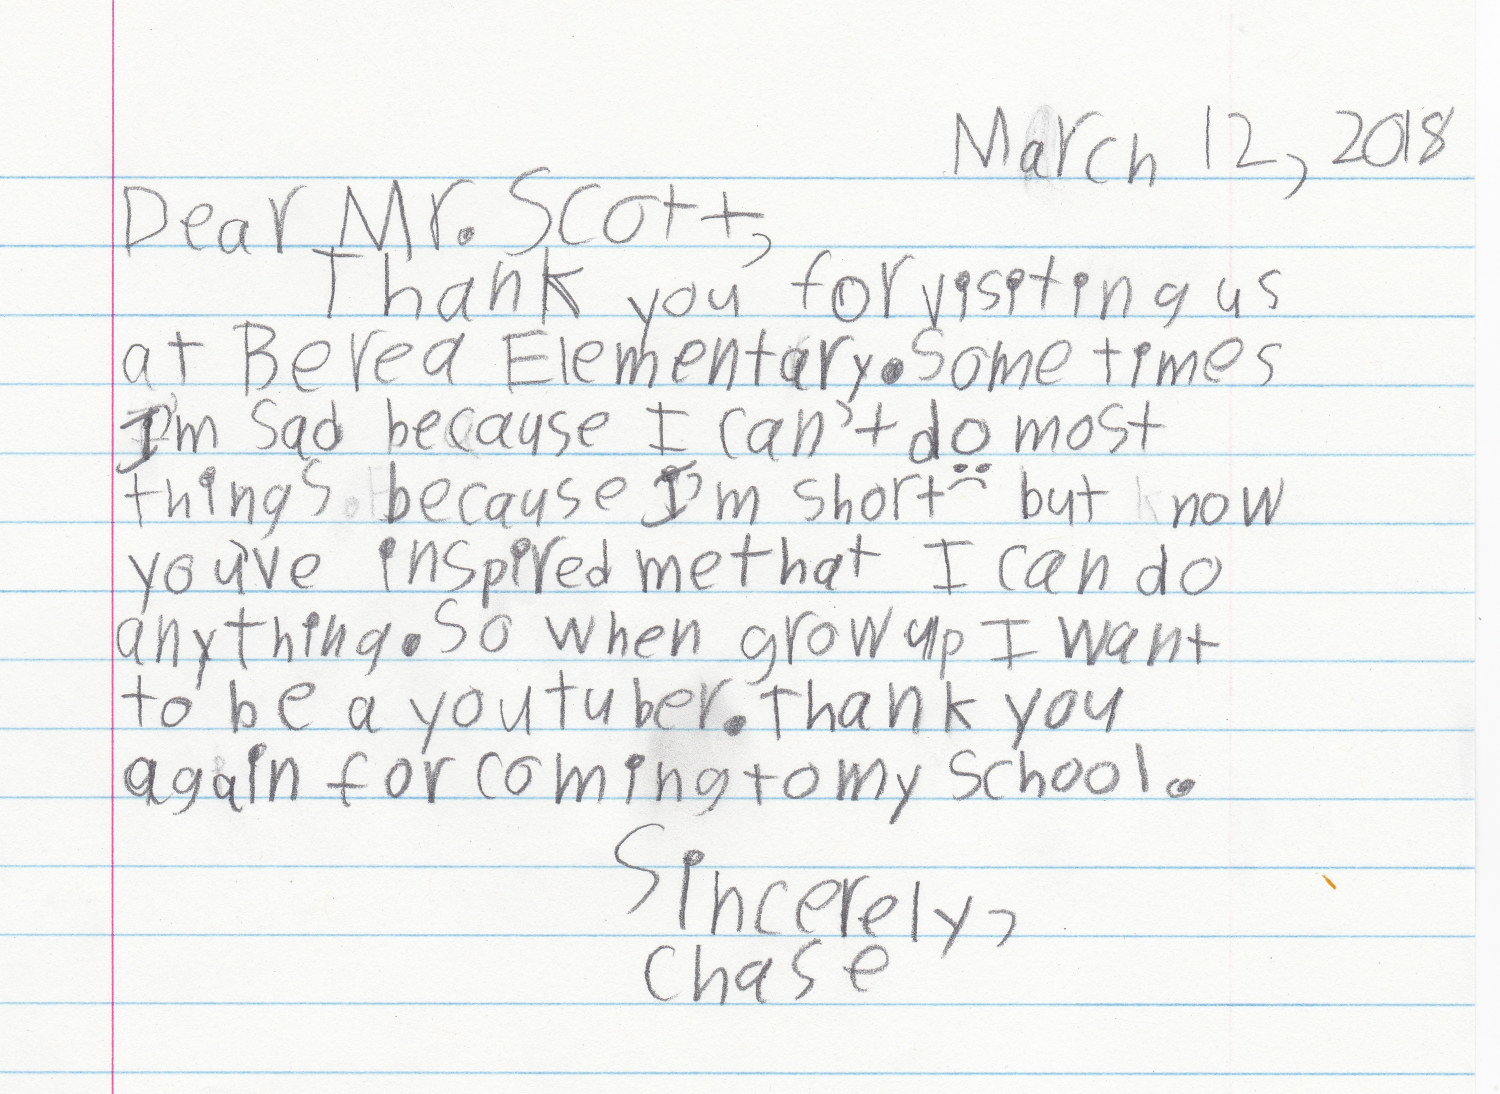 March 12, 2018
Dear Mr. Scott,
Thank you for visiting us
at Berea Elementary. Sometimes
I'm sad because I can't do most
things because I'm short :( but now
you've inspired me that I can do
anything. So when grow up I want
to be a youtuber. Thank you
again for coming to my school.
Sincerely,
Chase